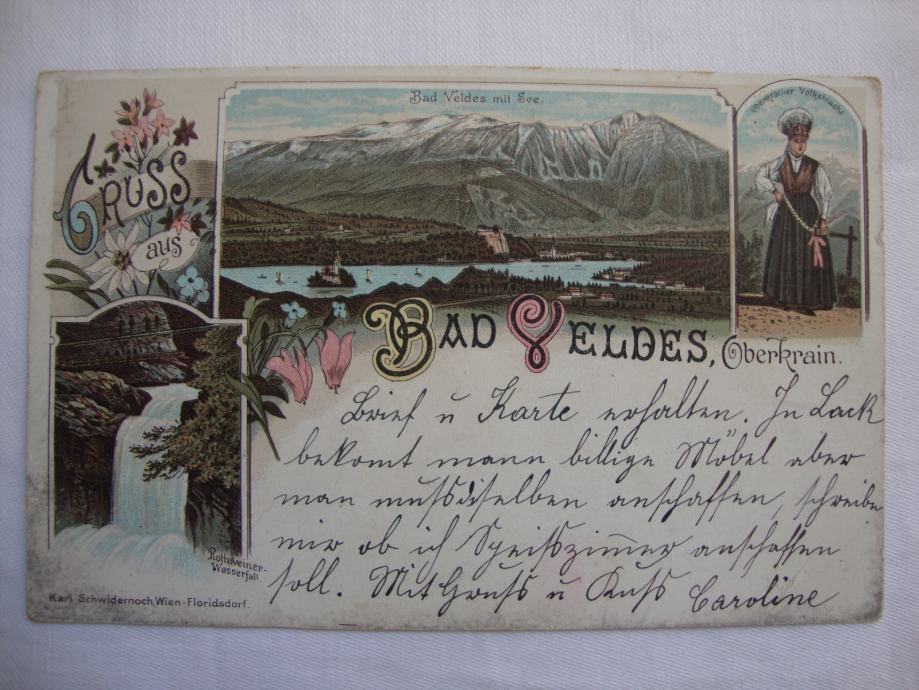 Bad Veldes mit See.
Oberkrainer Volkstracht
Gruss
aus
Bad Veldes, Oberkrain.
Brief u Karte erhalten. In Lack
bekomt mann billige Möbel aber
man mufsdiselben anschaffen, schreibe
mir ob ich Speifszimmer anschaffen
soll. Mit Grufs u Kufs Caroline
Rothweiner-
Wasserfall.
Karl Schwidernoch, Wien-Floridsdorf.